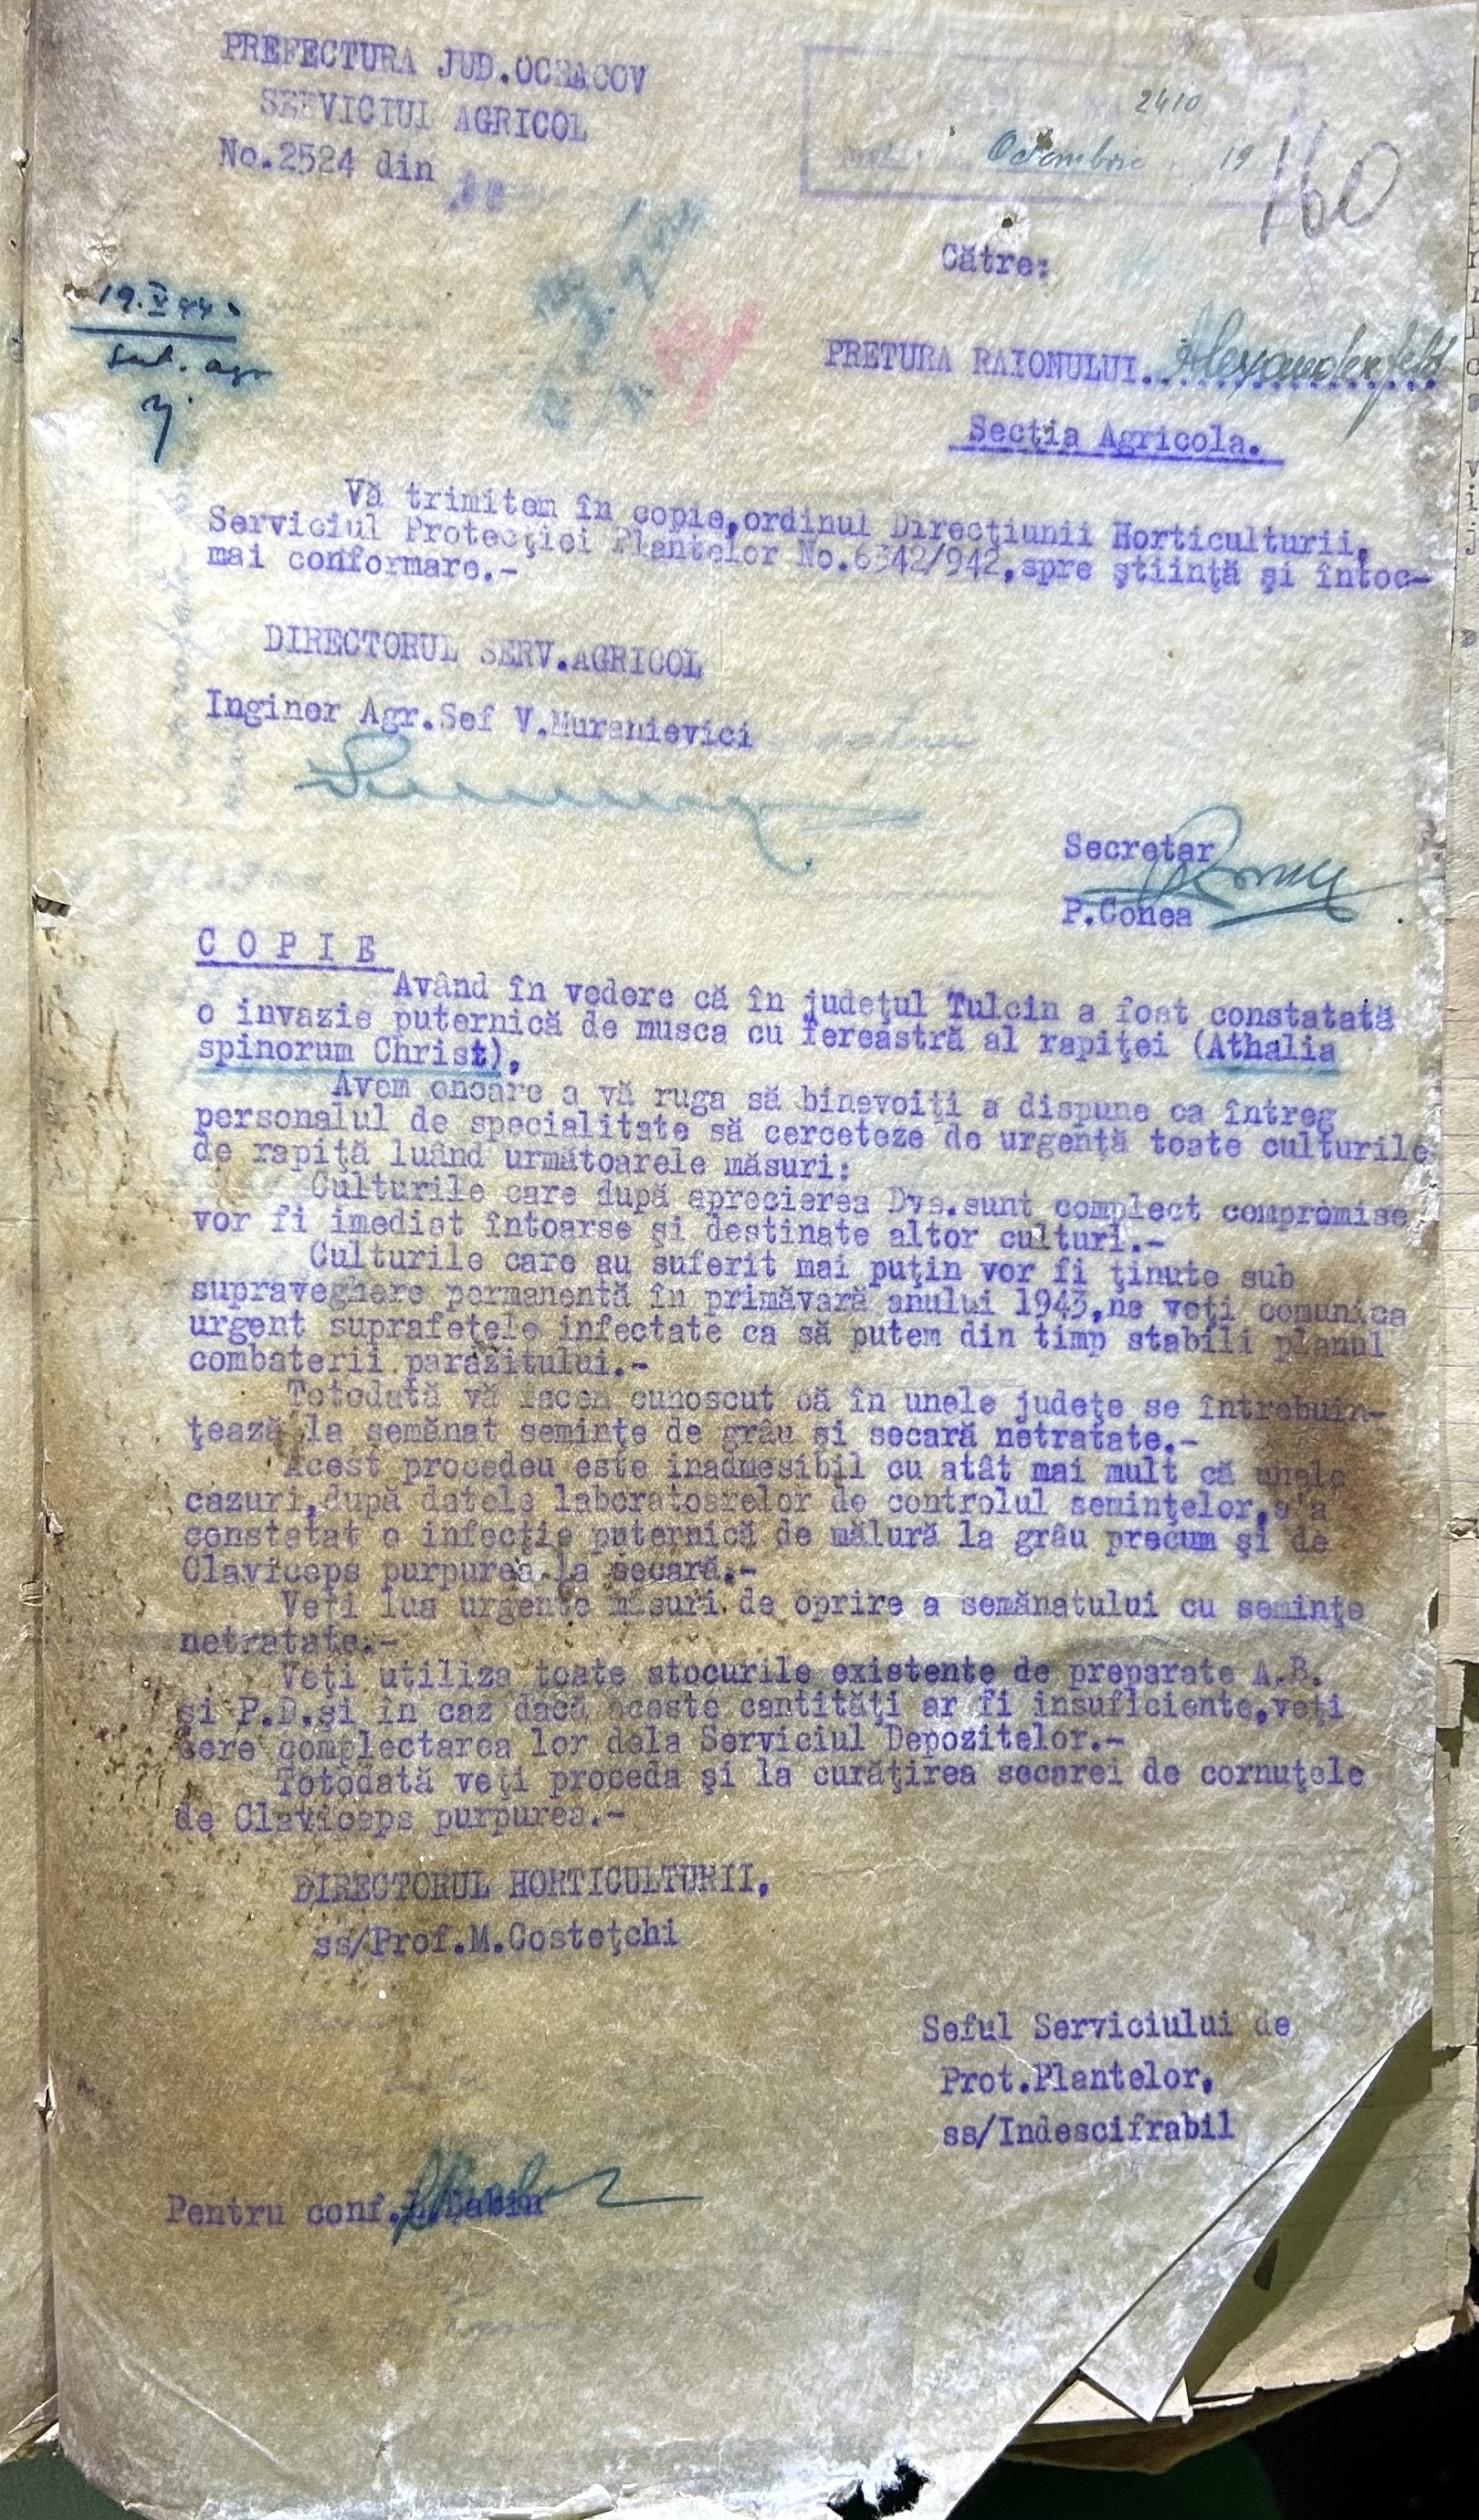 PREFECTURA JUD.OCEACOV
SERVICIUL AGRICOL
No.2524 din
2410
Octombrie 19
160
Către:
19.V 44
PRETURA RAIONULUI...Alexanderfeld
Secția Agricola.
Vă trimitem în copie,ordinul Direcțiunii Horticulturii,
Serviciul Protecției Plantelor No.6342/942,spre știință și întoc-
mai conformare.-
DIRECTORUL SERV.AGRICOL
Inginer Agr.Sef V.Muranievici
Secretar
P.Conea
C O P I E
Având în vedere că în județul Tulcin a fost constatată
o invazie puternică de musca cu fereastră al rapiței (Athalia
spinorum Christ),
Avem onoare a vă ruga să binevoiți a dispune ca întreg
personalul de specialitate să cerceteze de urgență toate culturile
de rapiță luând următoarele măsuri:
Culturile care după aprecierea Dvs.sunt complect compromise
vor fi imediat întoarse și destinate altor culturi.-
Culturile care au suferit mai puțin vor fi ținute sub
supraveghere permanentă în primăvară anului 1943,ne veți comunica
urgent suprafețele infectate ca să putem din timp stabili planul
combaterii parazitului.-
Totodată vă facem cunoscut că în unele județe se întrebuin-
țează la semănat semințe de grâu și secară netratate.-
Acest procedeu este inadmesibil cu atât mai mult că unele
cazuri,după datele laboratoarelor de controlul semințelor,s'a
constatat o infecție puternică de mălură la grâu precum și de
Claviceps purpurea la secară.-
Veți lua urgente măsuri de oprire a semănatului cu semințe
netratate.-
Veți utiliza toate stocurile existente de preparate A.B.
și P.D.și în caz dacă aceste cantități ar fi insuficiente,veți
cere complectarea lor dela Serviciul Depozitelor.-
Totodată veți proceda și la curățirea secarei de cornuțele
de Claviceps purpurea.-
DIRECTORUL HORTICULTURII,
ss/Prof.M.Costețchi
Seful Serviciului de
Prot.Plantelor,
ss/Indescifrabil
Pentru conf.